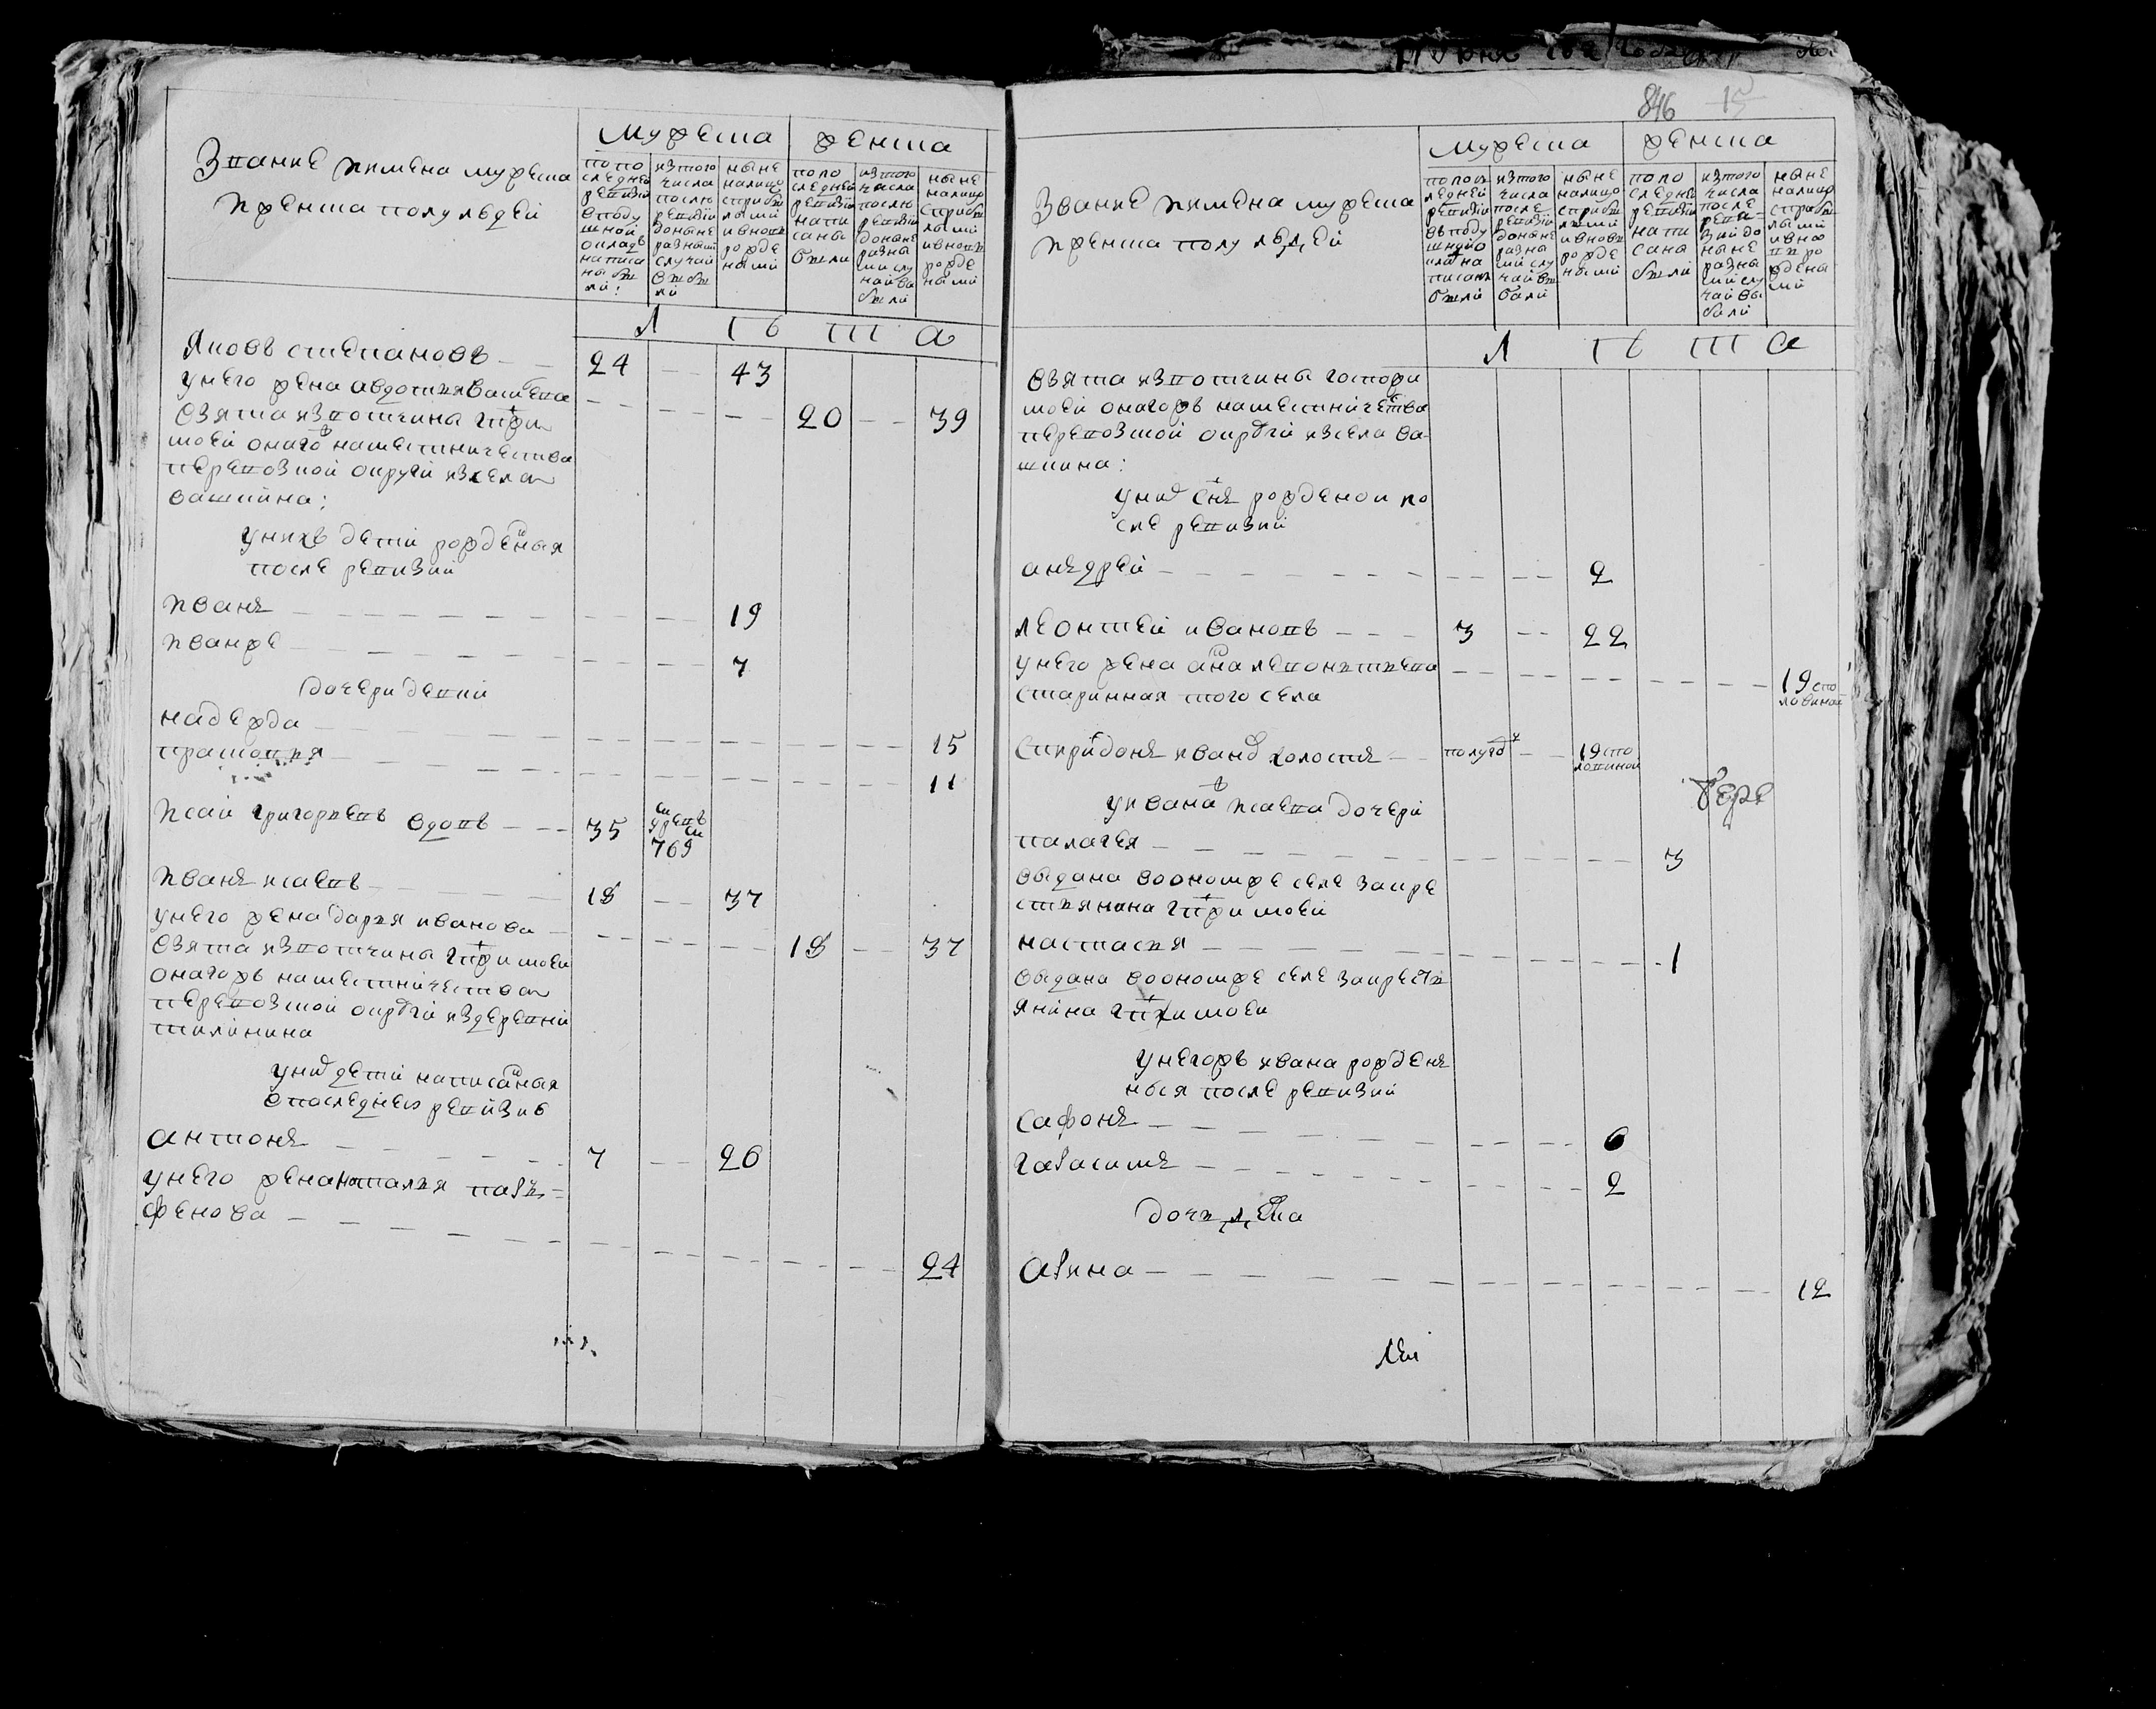 Звание и имена мужеска
и женска полу людей
мужеска
женска
по по
следней
ревизии
в поду
шной
окладъ
написа
ны бы
ли:
из того
числа
после
ревизии
доныне
разными
случаи
выбы
ли
ныне
налицо
с прибы
лыми
и вновь
рожде
ными
по по
следней
ревизии
напи
саны
были
из того
числа
после
ревизии
доныне
разны
ми слу
чаи вы
были
ныне
налицо
с прибы
лыми
и вновь
рожде
ными
Л Е Т А
Яковъ степановъ 24 43
у него жена авдотья
взята из вотчины гспжи
моей онагожъ наместничества
перевозкой округи из села
вашкина: 20 39
у нихъ дети рожденыя
после ревизии
иванъ 19
иванже 7
дочери девки
надежда 15
прасковия 11
исаи григорьевъ вдовъ 35 769
иванъ исаевъ 18 37
у него жена дарья иванова
взята из вотчины гспжи моей 18 37
онагожъ наместничества
перевозкой округи из деревни
пилинина
у них дети написаныя
в последней ревизие
антонъ 7 26
у него жена наталья парь=
фенова 24
846 15
Звание и имена мужеска
и женска полу людей
мужеска
женска
по посл
ледней
ревизии
в поду
шной о
клад на
писаны
были
из того
числа
после
ревизии
доныне
разны
ми слу
чаи вы
были
ныне
налицо
с прибы
лыми
и вновь
рожде
ными
по по
следней
ревизии
напи
саны
были
из того
числа
после
реви-
зии до
ныне
разны
ми слу
чаи вы
были
ныне
налицо
с прибы
лыми
и вно
вь ро
ждены
ми
Л Е Т А
взята из вотчины госпожи
моей онагожъ наместничества
перевозкой округи из села ва-
шкина:
у них снъ рожденои по
сле ревизии
анъдрей 2
леонтей ивановъ 3 22
у него жена анна левонтьева
старинная того села 19 спо
ловиной
спиридонъ иванов холостъ полугод 19 спо
ловиной
у ивана исаева дочери
палагея 3
выдана во ономже селе за кре
стьянина гспжи моей
настасья 1
выдана во ономже селе за кресть
янина гспжи моей
у негожъ ивана рожденъ
ныя после ревизии
сафонъ 6
гарасимъ 2
дочь девка
арина 12